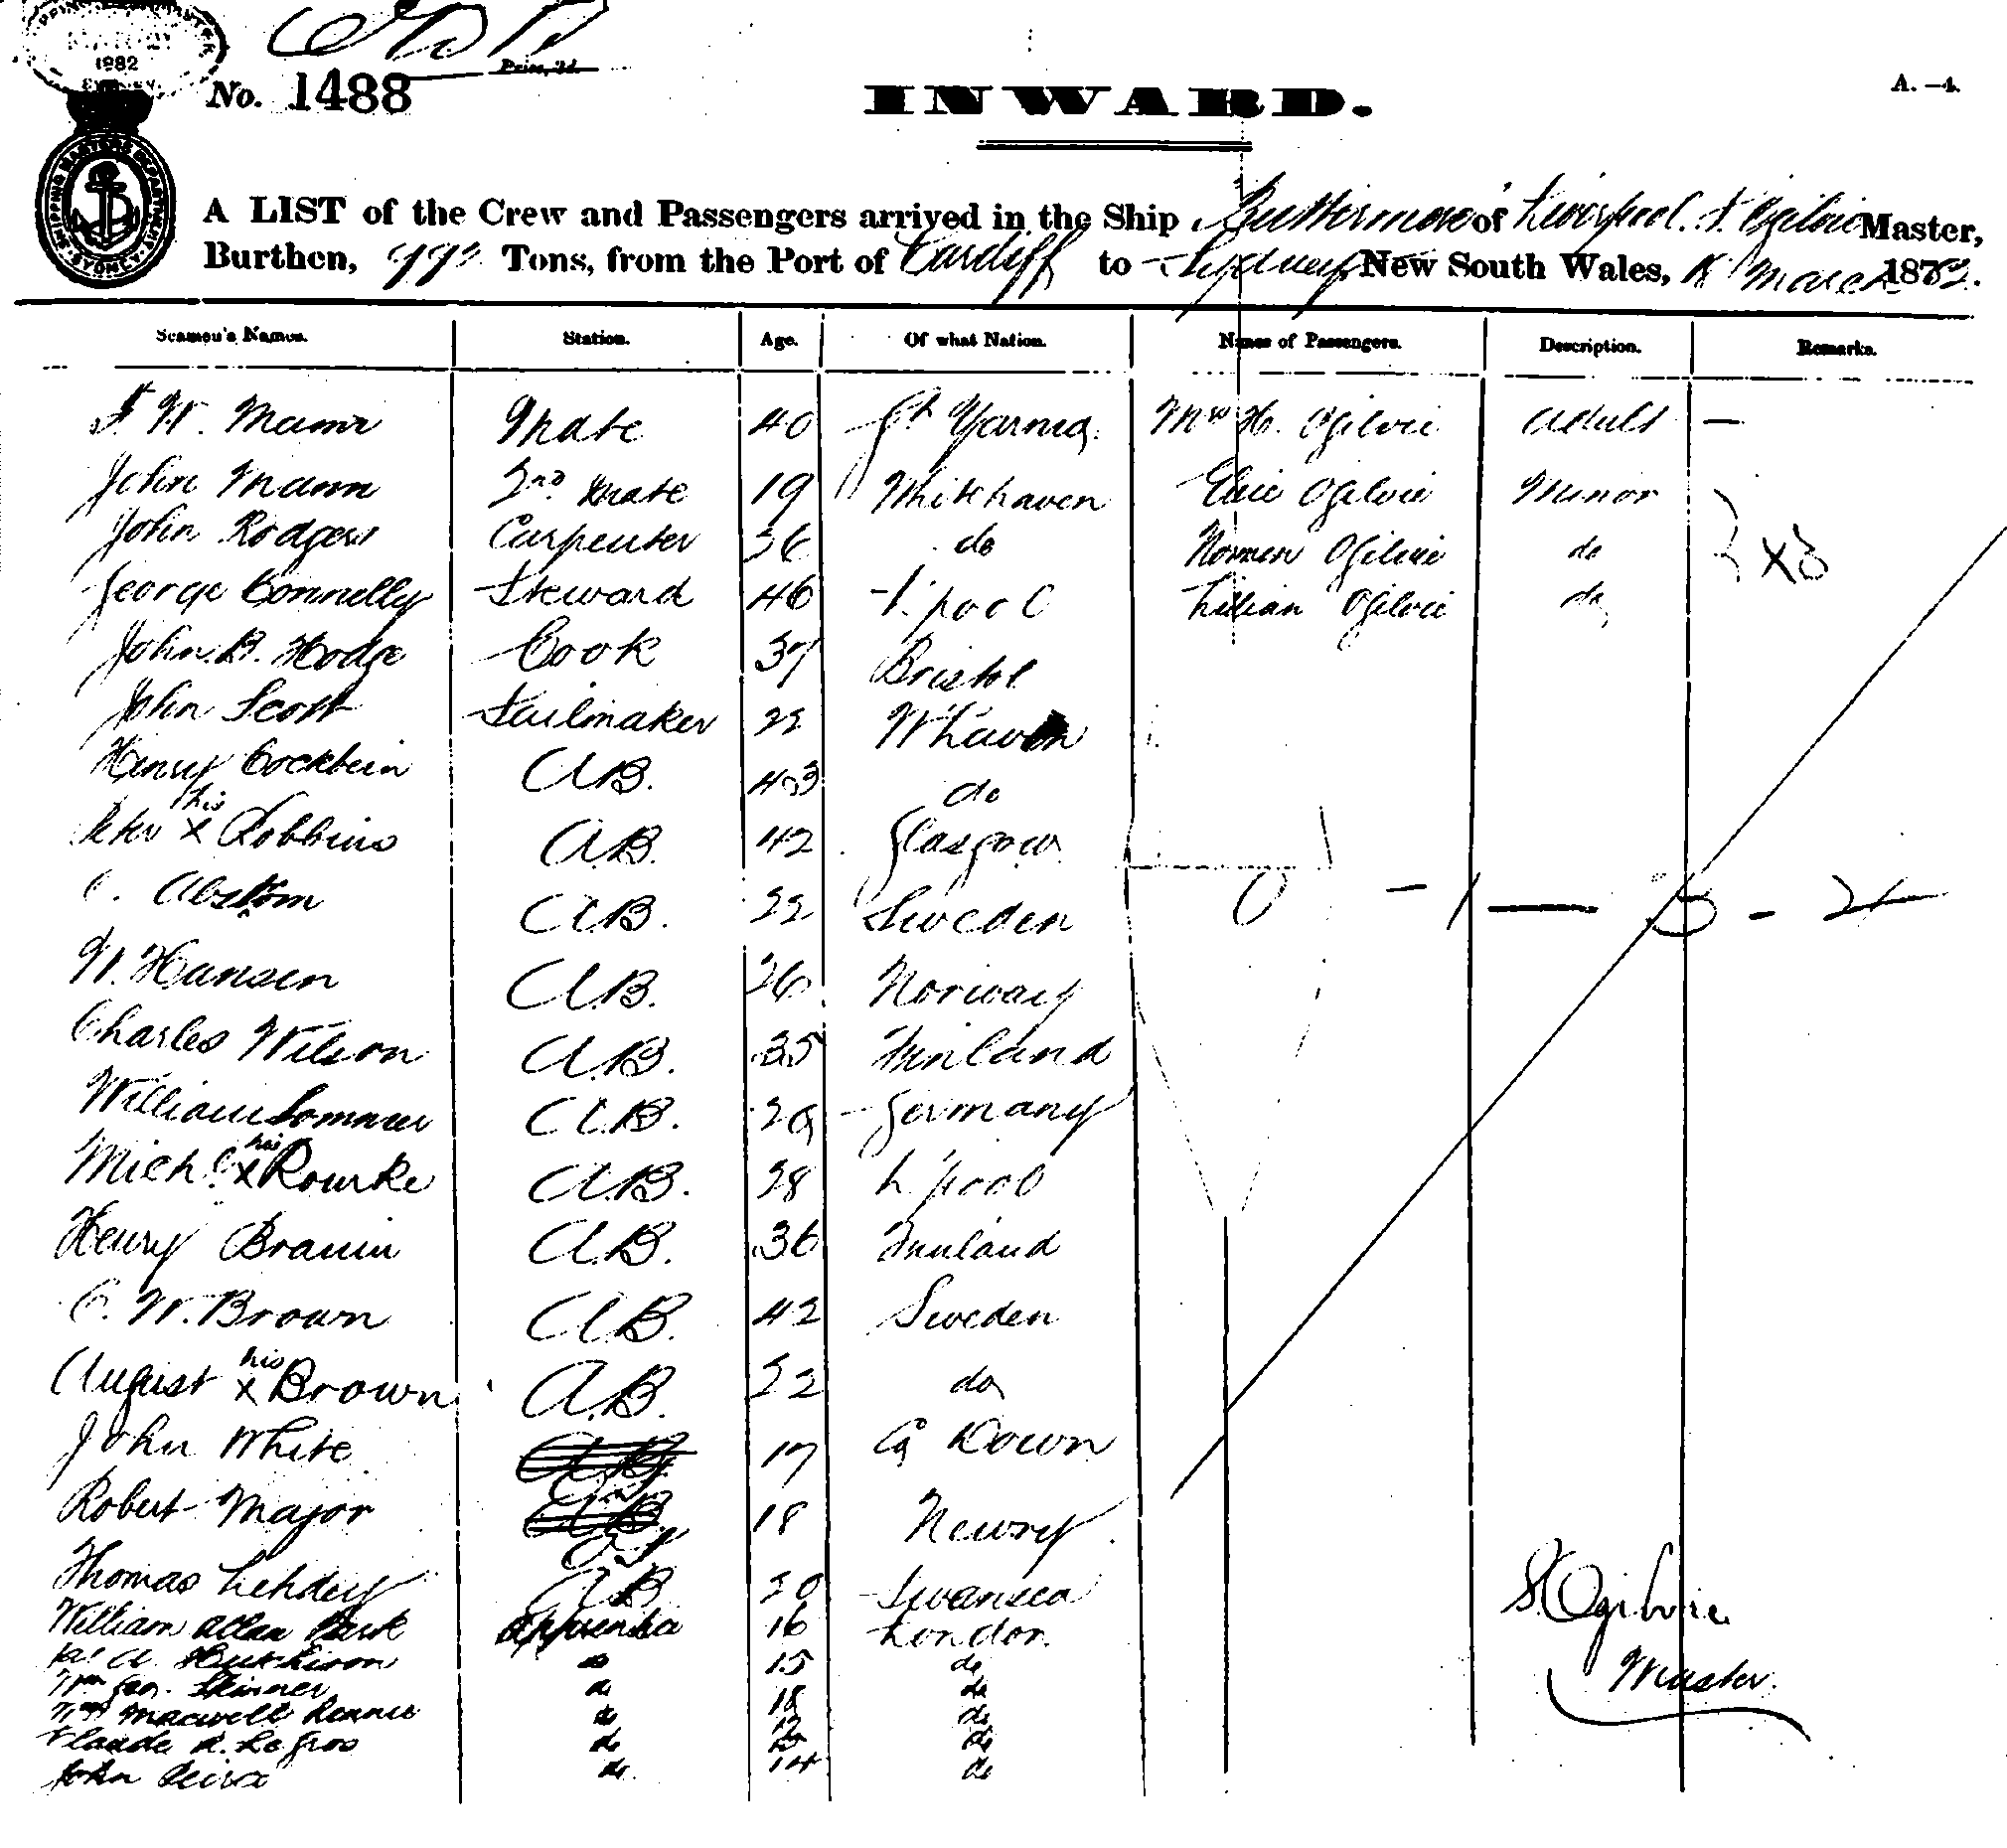 1882
SYDNEY
Price, 3d.
No. 1488
INWARD.
A.—4.
SHIPPING MASTERS DEPARTMENT SYDNEY
A LIST of the Crew and Passengers arrived in the Ship Buttermere of Liverpool. S. Ogilvie Master,
Burthen, Tons, from the Port of Cardiff to Sydney New South Wales, March 1882.
Seamen's Names. Station. Age. Of what Nation. Names of Passengers. Description. Remarks.
Mann Mate 40 Gt Yarm Mrs H. Ogilvie adult —
John Mann 2nd Mate 19 Whitehaven Elsie Ogilvie Minor
John Rodgers Carpenter 36 do Norman Ogilvie do x3
George Connelly Steward 46 L'pool Lillian Ogilvie do
John B. Hodge Cook 37 Bristol
John Scott Sailmaker 22 W'haven
Henry Cockbain A.B. 43 do
Peter his x Robbins A.B. 42 Glasgow
C. A.B. 22 Sweden 0 - 1 — 3 -
W. Hansen A.B. 26 Norway
Charles Wilson A.B. 35 Finland
William Sommer A.B. Germany
Michl his x Rourke A.B. 28 L'pool
Henry Braun A.B. 36 Finland
C. W. Brown A.B. 42 Sweden
August his x Brown A.B. 22 do
John White 17 Co Down
Robert Major 18 Newry
Thomas Lehdey AB 20 Swansea
William Allan Park Apprentice 16 London
A. Hutchison do 15 do
Wm Geo. Skinner do 18 do
Wm Maxwell Rennie do do
Claude R. Le Gros do do
John do 14 do
S. Ogilvie
Master.